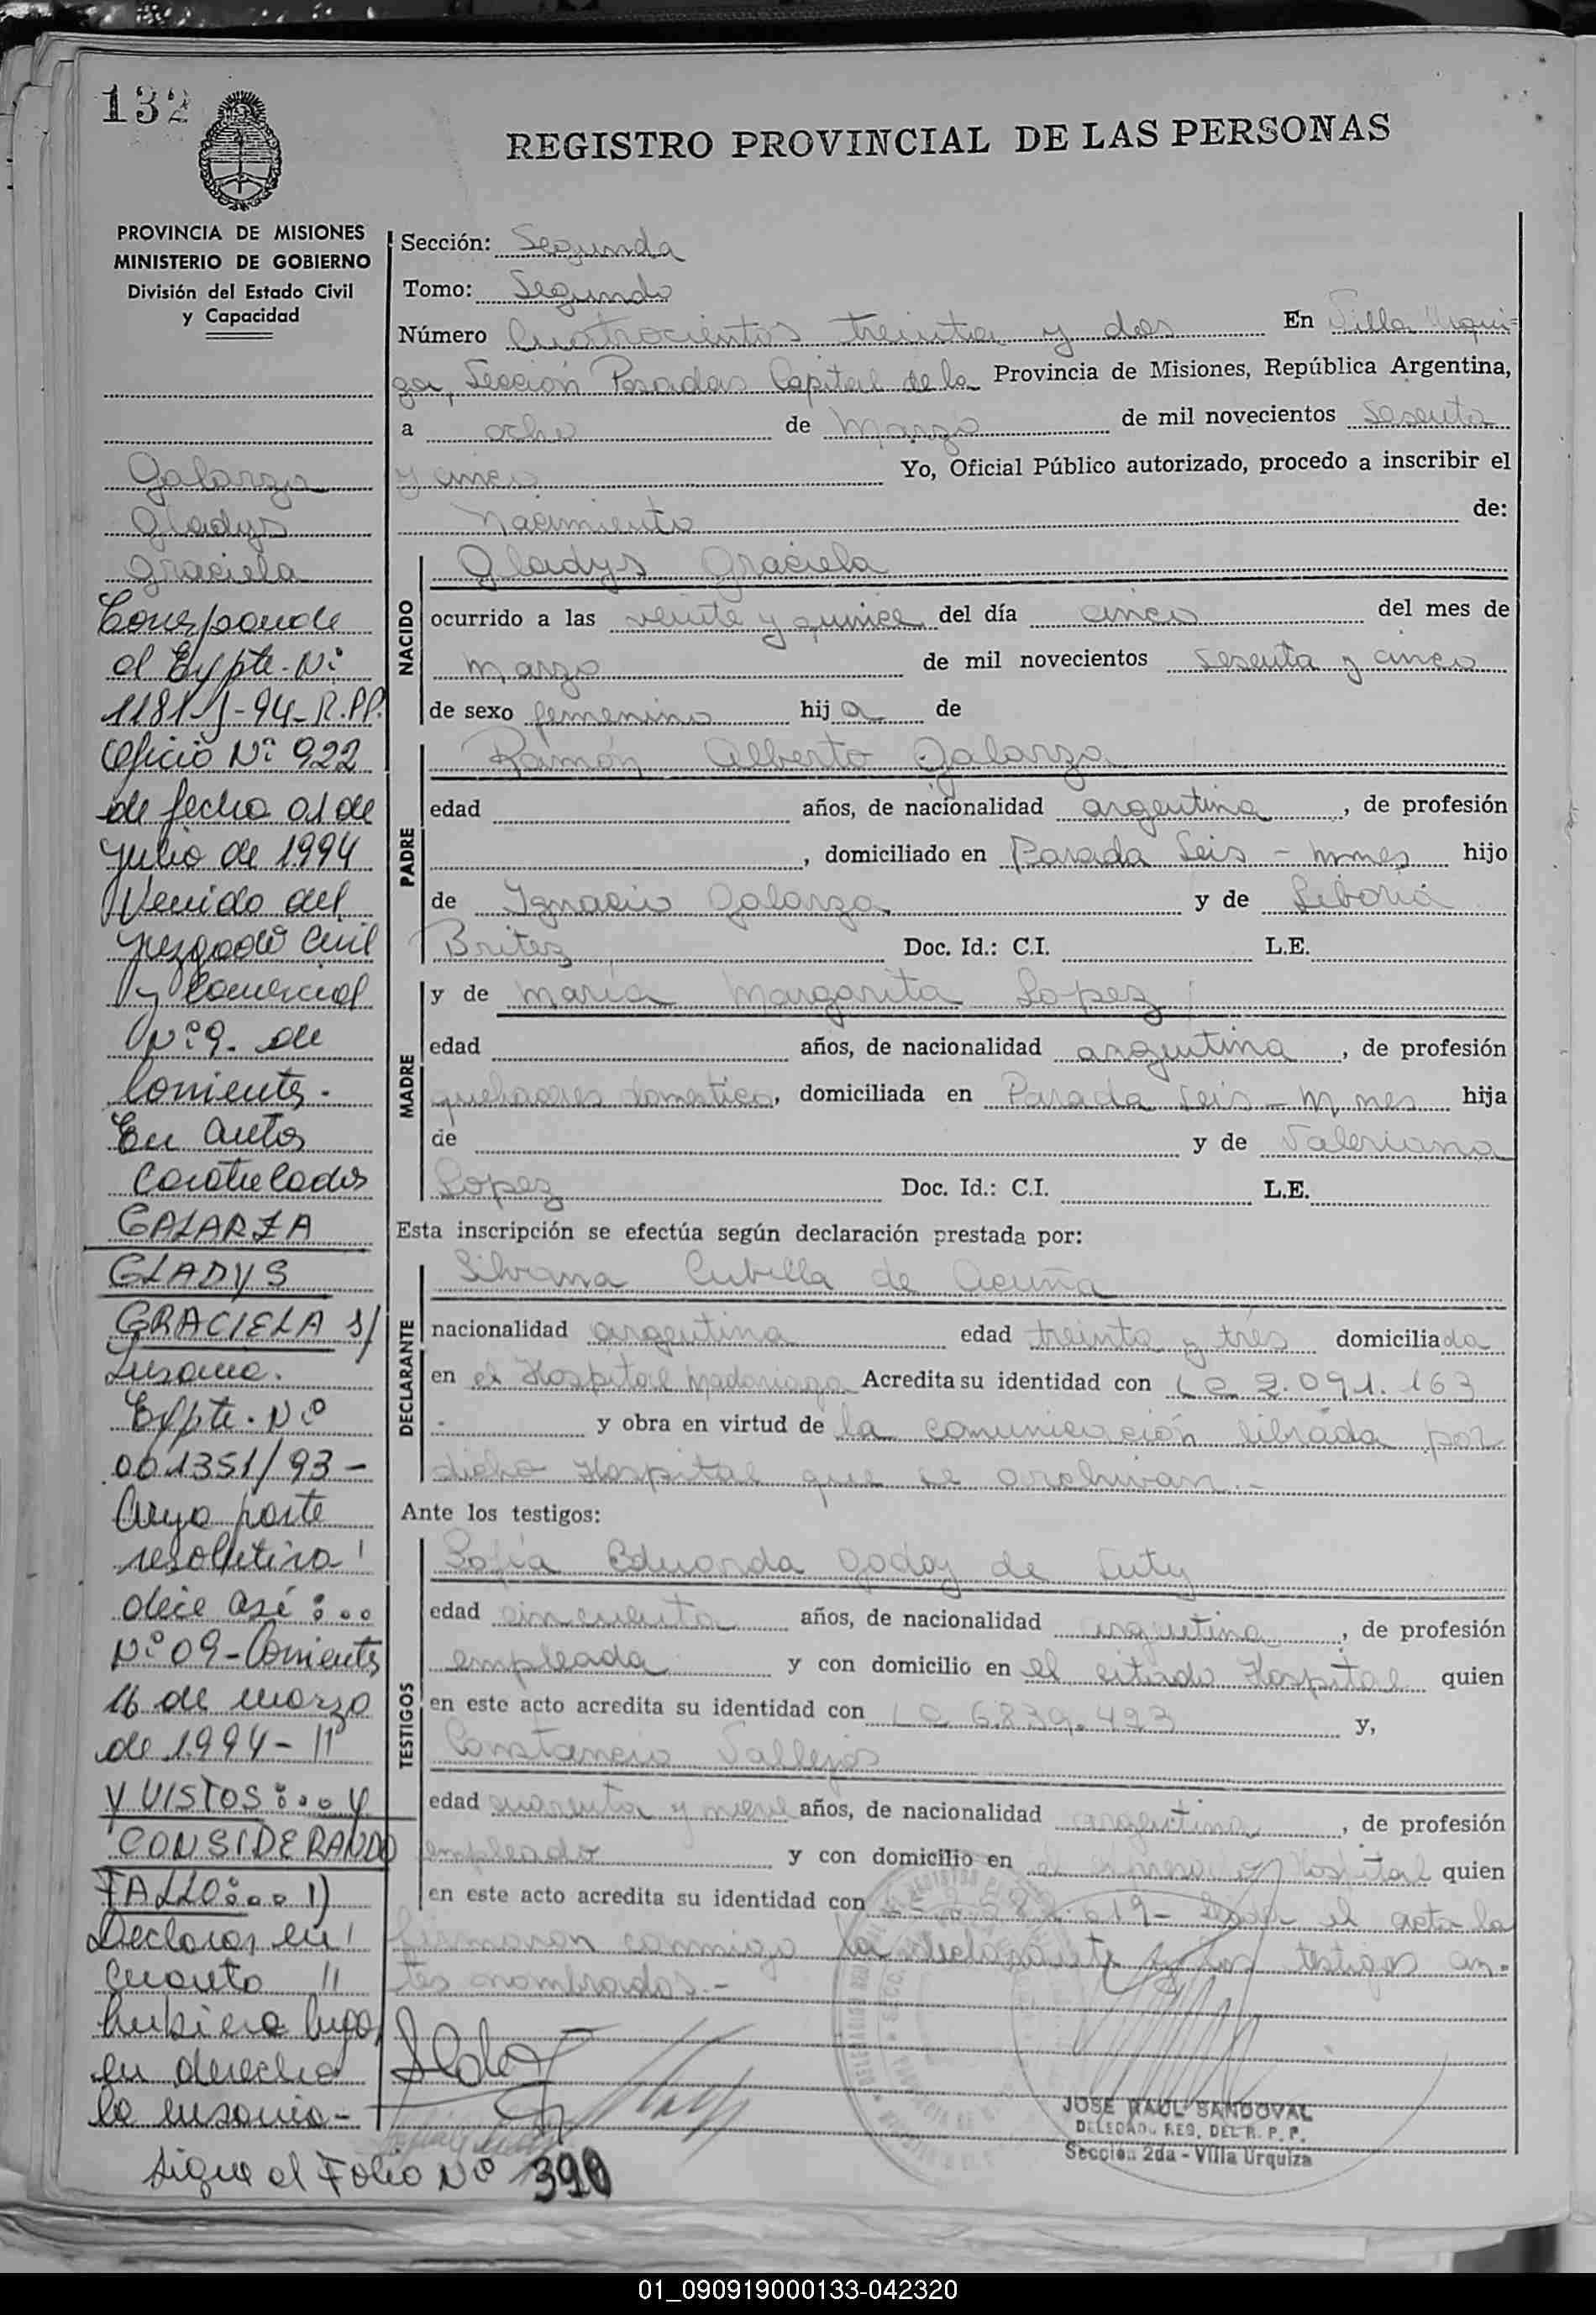 132
REGISTRO PROVINCIAL DE LAS PERSONAS
PROVINCIA DE MISIONES
MINISTERIO DE GOBIERNO
División del Estado Civil
y Capacidad
Galarza
Gladys
Graciela
Corresponde
al Expte. Nº
1181-J-94-R.PP.
Oficio Nº 922
de fecha 01 de
julio de 1994
Venido del
juzgado Civil
y Comercial
Nº 9. de
Corrientes.
En autos
Caratulados
GALARZA
GLADYS
GRACIELA s/
Insania.
Expte. Nº
001351/93-
Cuya parte
resolutiva
dice así:..
Nº 09-Corrientes
16 de marzo
de 1994-"
Y VISTOS:... Y
CONSIDERANDO
FALLO:... 1)
Declarar en
cuanto "
hubiera lugar
en derecho
la insania-
Sigue al Folio Nº 390
Sección: Segunda
Tomo: Segundo
Número Cuatrocientos treinta y dos En Villa Urqui=
za, Sección Posadas Capital de la Provincia de Misiones, República Argentina,
a ocho de Marzo de mil novecientos sesenta
y cinco Yo, Oficial Público autorizado, procedo a inscribir el
Nacimiento de:
NACIDO
Gladys Graciela
ocurrido a las veinte y quince del día cinco del mes de
Marzo de mil novecientos sesenta y cinco
de sexo femenino hija de
PADRE
Ramón Alberto Galarza
edad años, de nacionalidad argentina, de profesión
, domiciliado en Parada Seis - Mnes hijo
de Ignacio Galarza y de Liboria
Britez Doc. Id.: C.I. L.E.
MADRE
y de María Margarita Lopez
edad años, de nacionalidad argentina, de profesión
quehaceres domestico, domiciliada en Parada Seis - Mnes hija
de y de Valeriana
Lopez Doc. Id.: C.I. L.E.
Esta inscripción se efectúa según declaración prestada por:
DECLARANTE
Silvana Cubilla de Acuña
nacionalidad argentina edad treinta y tres domiciliada
en el Hospital Madariaga Acredita su identidad con LC 2.091.163
y obra en virtud de la comunicación librada por
dicho Hospital que se archivan.-
Ante los testigos:
TESTIGOS
Sofía Eduarda Godoy de
edad cincuenta años, de nacionalidad argentina, de profesión
empleada y con domicilio en el citado Hospital quien
en este acto acredita su identidad con LC 6.839.493 y,
Constancio Vallejos
edad cuarenta y nueve años, de nacionalidad argentina, de profesión
empleado y con domicilio en el expresado Hospital quien
en este acto acredita su identidad con 019- el acta la
firmaron conmigo la declarante y los testigos an=
tes nombrados.-
JOSE RAUL SANDOVAL
DELEGADO REG. DEL R. P. P.
Sección 2da - Villa Urquiza
01_090919000133-042320